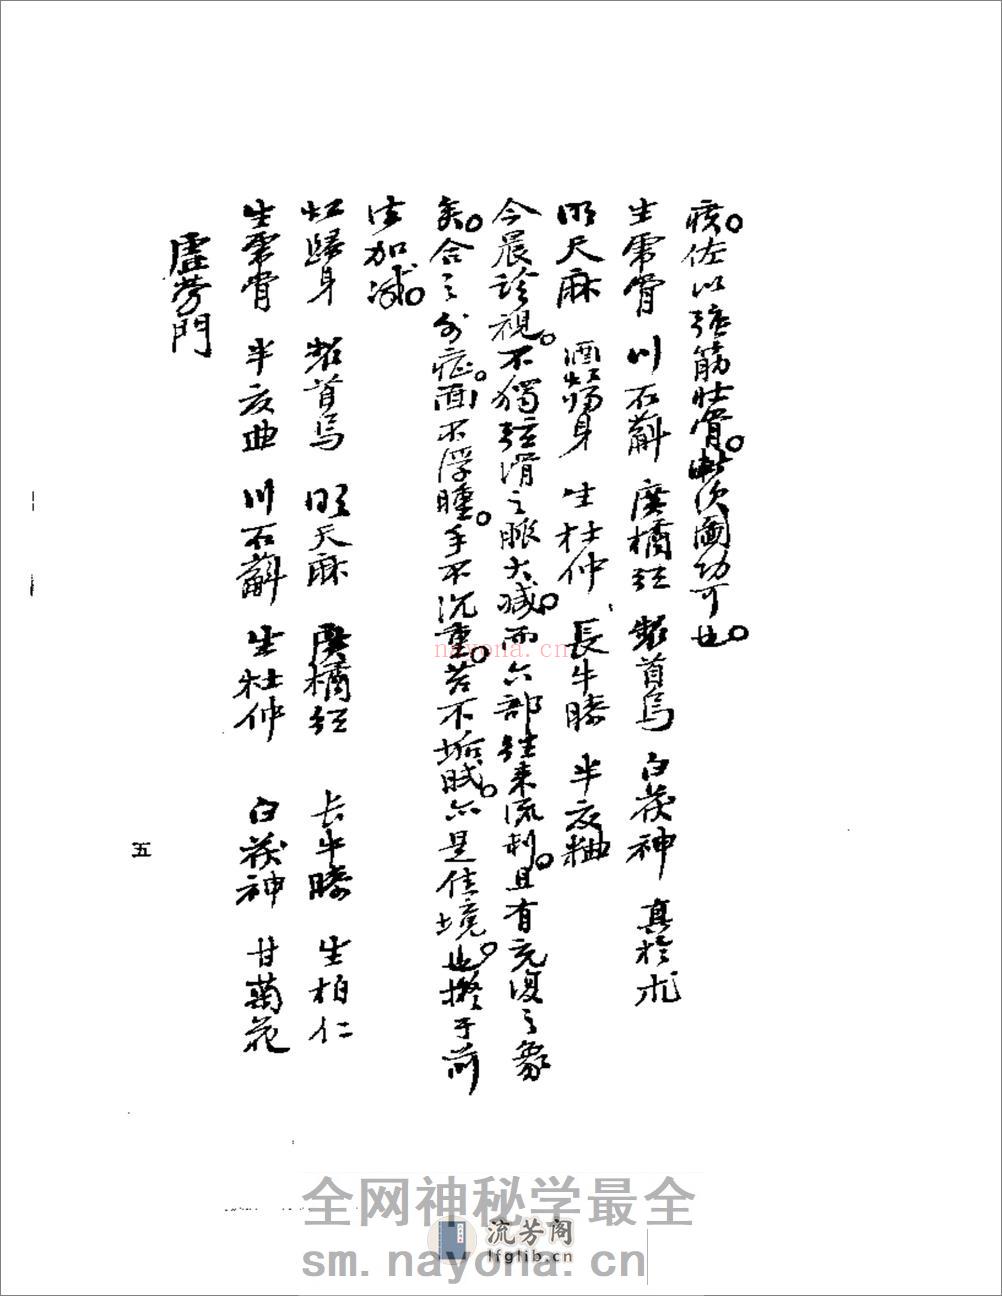 痰。佐以強筋壯骨。漸次圖功可也。
生虎骨 川石斛 廣橘紅 製首烏 白茯神 真於朮
明天麻 酒歸身 生杜仲 長牛膝 半夏麯
今晨診視。不獨弦滑之脈大減。而六部往來流利。且有充復之象
矣。合之外症。面不浮腫。手不沉重。苔不垢膩。亦是佳境也。擬于前
法加減。
缸歸身 製首烏 明天麻 廣橘紅 長牛膝 生柏仁
生虎骨 半夏曲 川石斛 生杜仲 白茯神 甘菊花
虛勞門
五
nayona.cn
全网神秘学最全
流芳阁
lfglib.cn
sm.nayona.cn